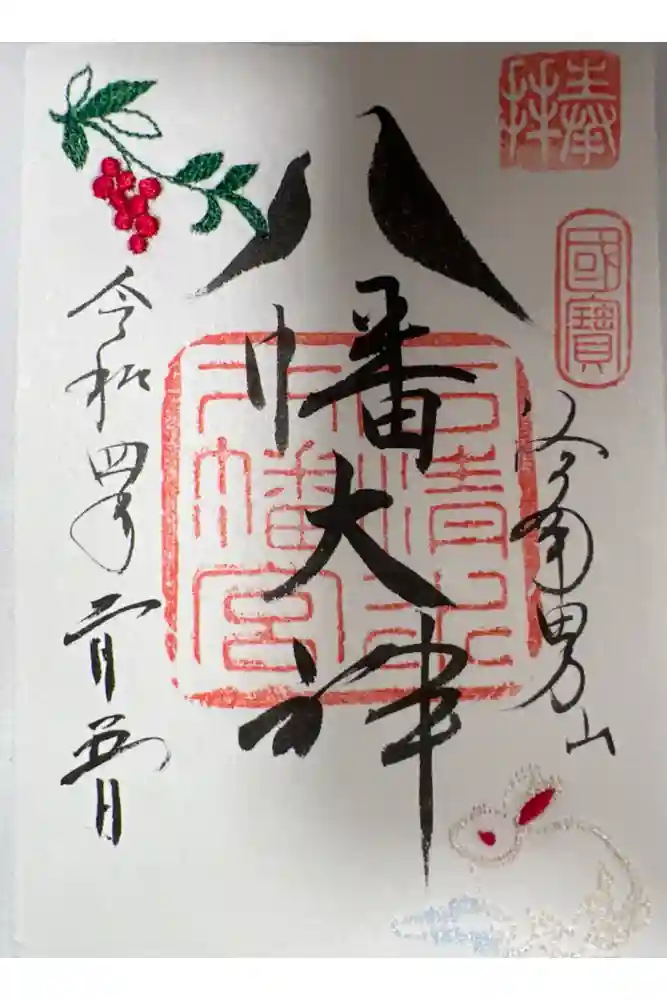 奉拝
國寶
洛南男山
八幡大神
石清水
八幡宮
令和四年二月五日